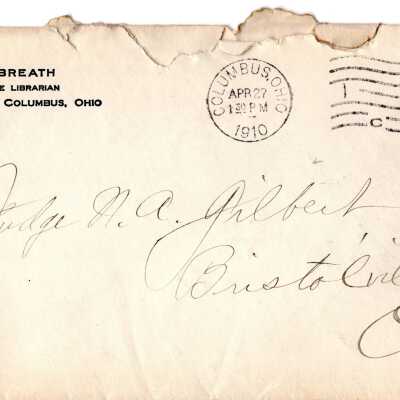 BREATH
E LIBRARIAN
COLUMBUS, OHIO
COLUMBUS, OHIO
APR 27
1 30 P M
1910
1
C
Judge N. A. Gilbert
Bristolvil
O